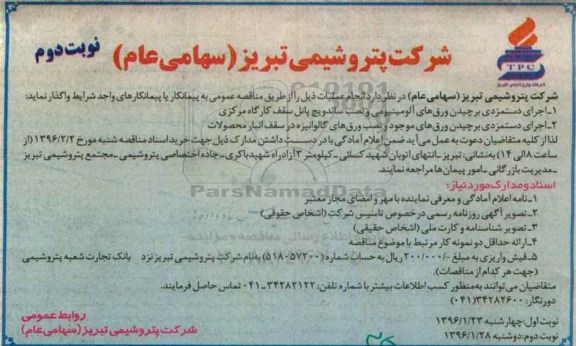 TPC
شرکت پتروشیمی تبریز (سهامی عام)
نوبت دوم
شرکت پتروشیمی تبریز (سهامی عام) در نظر دارد انجام عملیات ذیل را از طریق مناقصه عمومی به پیمانکار یا پیمانکارهای واجد شرایط واگذار نماید:
۱_اجرای دستمزدی برچیدن ورق‌های آلومینیومی و نصب ساندویچ پانل سقف کارگاه مرکزی
۲_اجرای دستمزدی برچیدن ورق‌های موجود و نصب ورق‌های گالوانیزه در سقف انبار محصولات
لذا از کلیه متقاضیان دعوت به عمل می‌آید ضمن اعلام آمادگی با در دست داشتن مدارک ذیل جهت خرید اسناد مناقصه شنبه مورخ ۱۳۹۶/۲/۲ (از
ساعت ۸ الی ۱۴) به نشانی: تبریز _ انتهای اتوبان شهید کسائی _ کیلومتر ۳ آزادراه شهید باکری _ جاده اختصاصی پتروشیمی _ مجتمع پتروشیمی تبریز
_ مدیریت بازرگانی _ امور پیمان‌ها مراجعه نمایند.
اسناد و مدارک مورد نیاز:
۱_نامه اعلام آمادگی و معرفی نماینده با مهر و امضای مجاز معتبر
۲_تصویر آگهی روزنامه رسمی درخصوص تاسیس شرکت (اشخاص حقوقی)
۳_تصویر شناسنامه و کارت ملی (اشخاص حقیقی)
۴_ارائه حداقل دو نمونه کار مرتبط با موضوع مناقصه
۵_فیش واریزی به مبلغ ۲۰۰/۰۰۰/- ریال به حساب شماره (۵۱۸۰۵۷۲۰۰) به‌نام شرکت پتروشیمی تبریز نزد بانک تجارت شعبه پتروشیمی
(جهت هر کدام از مناقصات).
متقاضیان می‌توانند به‌منظور کسب اطلاعات بیشتر با شماره تلفن: ۳۴۲۸۲۱۲۲-۰۴۱ تماس حاصل فرمایند.
دورنگار: ۳۴۲۸۲۶۰۰(۰۴۱)
نوبت اول: چهارشنبه ۱۳۹۶/۱/۲۳
نوبت دوم: دوشنبه ۱۳۹۶/۱/۲۸
روابط عمومی
شرکت پتروشیمی تبریز (سهامی عام)
ParsNamadData